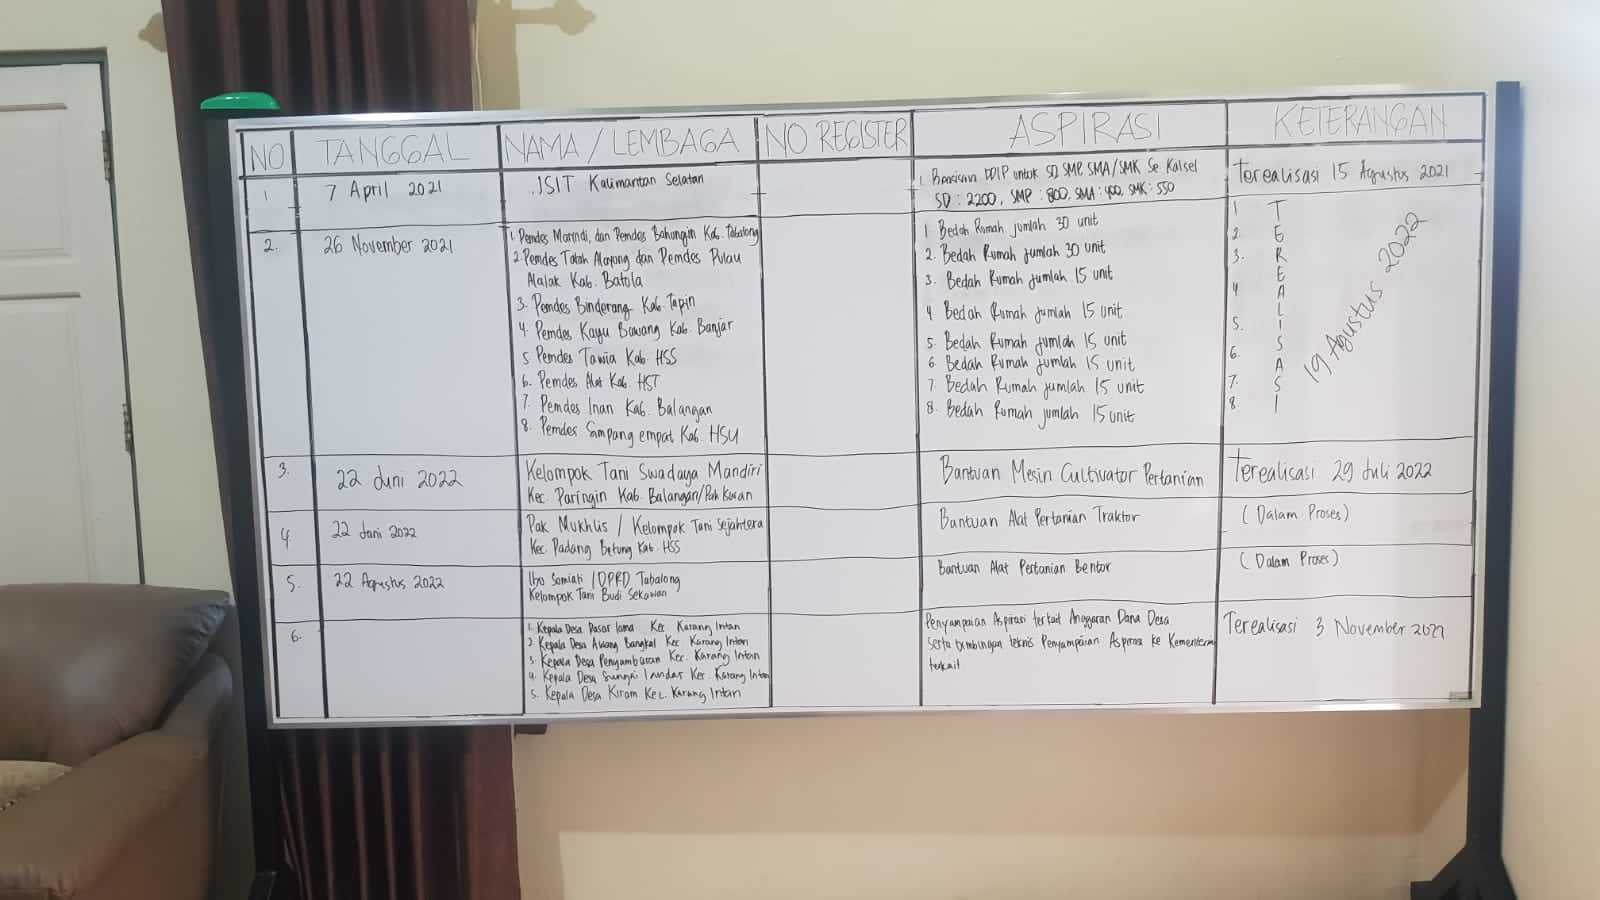 NO TANGGAL NAMA / LEMBAGA NO REGISTER ASPIRASI KETERANGAN
1 7 April 2021 JSIT Kalimantan Selatan
1. Beasiswa PPIP untuk SD SMP SMA/SMK Se. Kalsel
SD : 2200, SMP : 800, SMA : 400, SMK : 550
Terealisasi 15 Agustus 2021
2. 26 November 2021
1. Pemdes Marindi, dan Pemdes Bahungin Kab. Tabalong
2. Pemdes Tatah Alayung dan Pemdes Pulau
Alalak Kab. Batola
3. Pemdes Binderang Kab. Tapin
4. Pemdes Kayu Bawang Kab. Banjar
5 Pemdes Tawia Kab. HSS
6. Pemdes Alat Kab. HST
7. Pemdes Inan Kab. Balangan
8. Pemdes Sampang empat Kab. HSU
1 Bedah Rumah jumlah 30 unit
2. Bedah Rumah jumlah 30 unit
3. Bedah Rumah jumlah 15 unit
4 Bedah Rumah jumlah 15 unit
5. Bedah Rumah jumlah 15 unit
6. Bedah Rumah jumlah 15 unit
7. Bedah Rumah jumlah 15 unit
8. Bedah Rumah jumlah 15 unit
1
2
3.
4
5.
6.
7.
8.
TEREALISASI
19 Agustus 2022
3. 22 Juni 2022
Kelompok Tani Swadaya Mandiri
Kec. Paringin Kab. Balangan/Pak Kusan
Bantuan Mesin Cultivator Pertanian
Terealisasi 29 Juli 2022
4. 22 Juni 2022
Pak Mukhlis / Kelompok Tani Sejahtera
Kec. Padang Batung Kab. HSS
Bantuan Alat Pertanian Traktor
(Dalam Proses)
5. 22 Agustus 2022
Ibu Sumiati / DPRD Tabalong
Kelompok Tani Budi Sekawan
Bantuan Alat Pertanian Bentor
(Dalam Proses)
6.
1. Kepala Desa Pasar lama Kec Karang Intan
2. Kepala Desa Awang Bangkal Kec Karang Intan
3. Kepala Desa Penyambaran Kec. Karang Intan
4. Kepala Desa Sungai Landas Kec. Karang Intan
5. Kepala Desa Kiram Kec. Karang Intan
Penyampaian Aspirasi terkait Anggaran Dana Desa
serta bimbingan teknis Penyampaian Aspirasi ke Kementerian
terkait
Terealisasi 3 November 2021